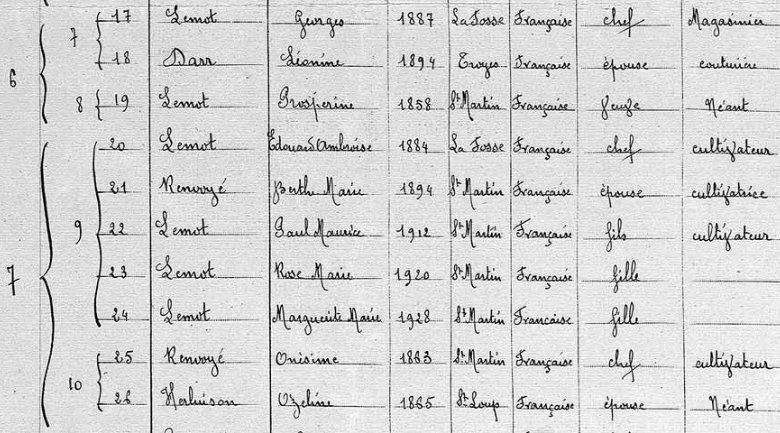 17 Lemot Georges 1887 La Fosse Française chef Magasinier
7
18 Darr Léonine 1894 Troyes Française épouse couturière
6
8 19 Lemot Prosperine 1858 St Martin Française Néant
20 Lemot Edouard Ambroise 1884 La Fosse Française chef cultivateur
21 Renvoyé Berthe Marie 1894 St Martin Française épouse cultivatrice
9 22 Lemot Paul Maurice 1912 St Martin Française fils cultivateur
7 23 Lemot Rose Marie 1920 St Martin Française fille
24 Lemot Marguerite Marie 1928 St Martin Française fille
25 Renvoyé Onisime 1863 St Martin Française chef cultivateur
10
26 Herluison Ozéline 1865 St Loup Française épouse Néant